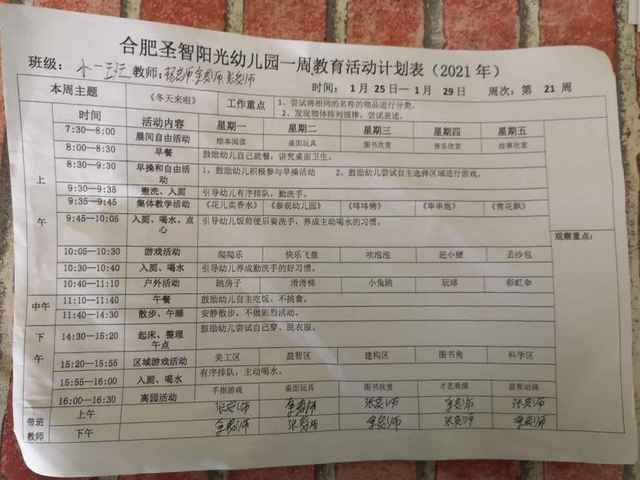 合肥圣智阳光幼儿园一周教育活动计划表（2021 年）
班级： 小一班 教师： 时间： 1 月 25日— 1 月 29 日 周次：第 21 周
本周主题 《冬天来啦》 工作重点 1、尝试将相同的名称的物品进行分类。
2、发现物体排列规律，尝试表述。
时间 活动内容 星期一 星期二 星期三 星期四 星期五
上午
7:30—8:00 晨间自由活动 绘本阅读 桌面玩具 图书欣赏 音乐欣赏 绘本欣赏
8:00—8:30 早餐 鼓励幼儿自己就餐，讲究桌面卫生。
8:30—9:30 早操和自由活动 1、鼓励幼儿积极参与早操活动 2、鼓励幼儿尝试自主选择区域进行游戏。
9:30—9:35 盥洗、入厕 引导幼儿有序排队，勤洗手。
9:35—9:45 集体教学活动 《花儿卖香水》 《参观幼儿园》
9:45—10:05 入厕、喝水、点心 引导幼儿饭前便后要洗手，养成主动喝水的习惯。
观察重点：
10:05—10:30 游戏活动 快乐飞盘 吹泡泡 赶小猪 丢沙包
10:30—10:40 入厕、喝水 引导幼儿养成勤洗手的好习惯。
10:40—11:10 户外活动 跳房子 滑滑梯 小兔跳 玩球 彩虹伞
中午
11:10—11:40 午餐 鼓励幼儿自主吃饭，不挑食。
11:40—14:30 散步、午睡 安静散步，不做剧烈活动。
下午
14:30—15:20 起床、整理 午点 鼓励幼儿尝试自己穿、脱衣服。
15:20—15:55 区域游戏活动 美工区 益智区 建构区 图书角 科学区
15:55—16:00 入厕、喝水 有序排队，主动喝水。
16:00—16:30 离园活动 手指游戏 桌面玩具 图书欣赏 才艺表演
带班教师
上午
下午